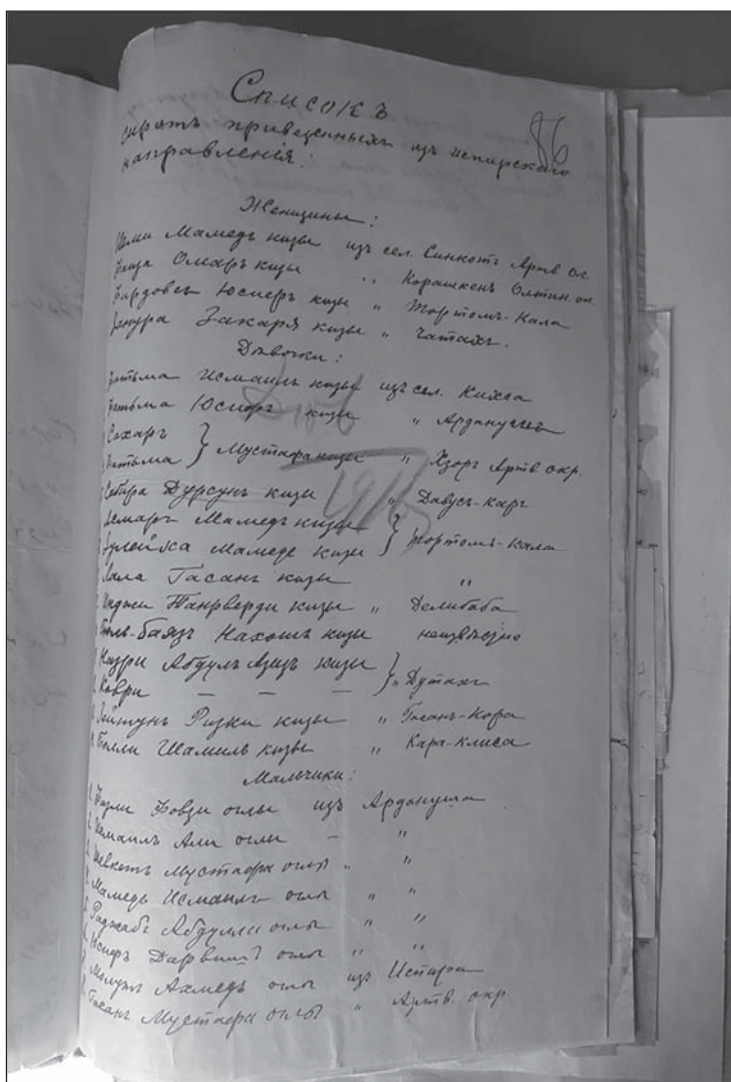 Списокъ
86
сиротъ приведенныхъ изъ испирскаго
направленія:
Женщины:
Мамедъ кизы изъ сел. Синкотъ Артв. ок.
Омаръ кизы " Корашкенъ Олтин. ок.
Фардовсъ Юсуфъ кизы " Тортомъ-Кала
Закаря кизы " Чатахъ.
Дѣвочки:
Фатьма Исмаилъ кизы изъ сел. Кихса
Фатьма Юсуфъ кизы " Ардануча
Сахаръ
Фатьма } Мустафа кизы " Хзоръ Артв. окр.
Дурсунъ кизы " Давусъ-каръ
Асмаръ Мамедъ кизы
Зулейха Мамедъ кизы } Тортомъ-Кала
Лала Гасанъ кизы "
Инджи Танрверди кизы " Делибаба
Гюль-баязъ кизы неизвѣстно
Абдулъ Азизъ кизы
— — — } " Дутахъ
Зейтунъ Ризки кизы " Гасанъ-Кара
Шамиль кизы " Кара-клиса
Мальчики:
Фазли Февзи оглы изъ Ардануча
Исмаилъ Али оглы — "
Шевкетъ Мустафа оглы " "
Мамедъ Исмаилъ оглы " "
Раджабъ Абдулла оглы " "
Юсуфъ Дарвишъ оглы " "
Ахмедъ оглы изъ Испира
Гасанъ Мустафа оглы " Артв. окр.